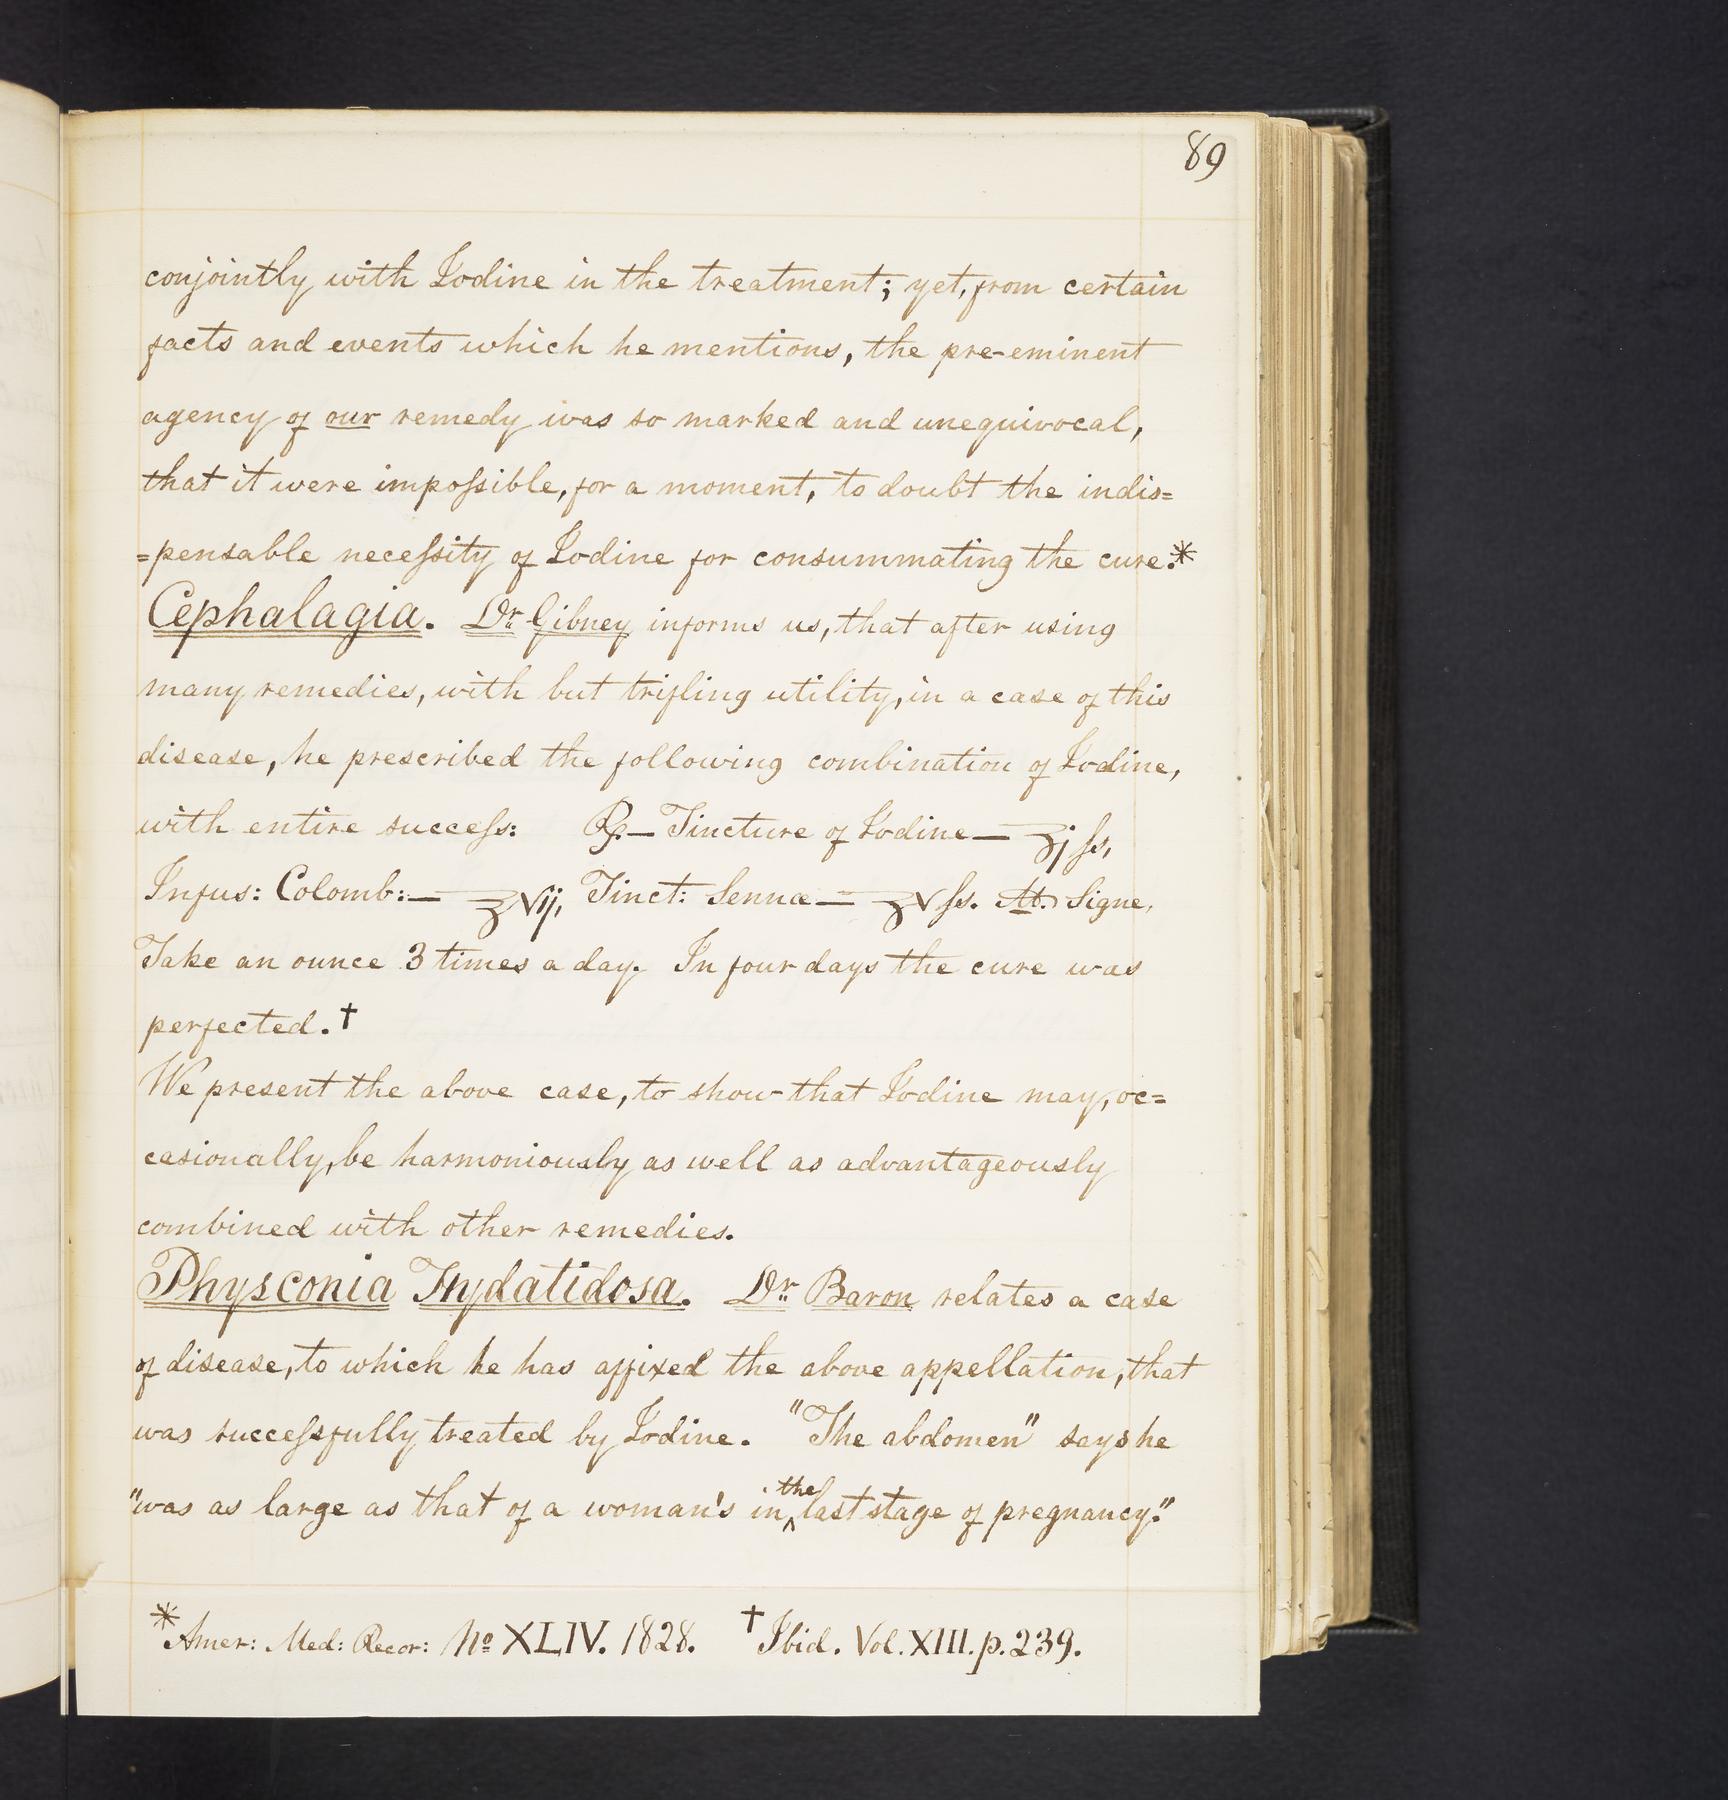 89
conjointly with Iodine in the treatment; yet, from certain
facts and events which he mentions, the pre-eminent
agency of our remedy was so marked and unequivocal,
that it were impoſsible, for a moment, to doubt the indis=
=pensable neceſsity of Iodine for consummating the cure.*
Cephalagia. Dr. Gibney informs us, that after using
many remedies, with but trifling utility, in a case of this
disease, he prescribed the following combination of Iodine,
with entire succeſs: ℞.— Tincture of Iodine— ʒjſs,
Infus: Colomb:— ℥vij, Tinct: Sennæ— ʒvſs. Signe,
Take an ounce 3 times a day. In four days the cure was
perfected.†
We present the above case, to show that Iodine may, oc=
casionally, be harmoniously as well as advantageously
combined with other remedies.
Physconia Hydatidosa. Dr. Baron relates a case
of disease, to which he has affixed the above appellation, that
was succeſsfully treated by Iodine. "The abdomen" says he
"was as large as that of a woman's in the last stage of pregnancy."
*Amer: Med: Recor: No XLIV. 1828. †Ibid. Vol. XIII. p. 239.